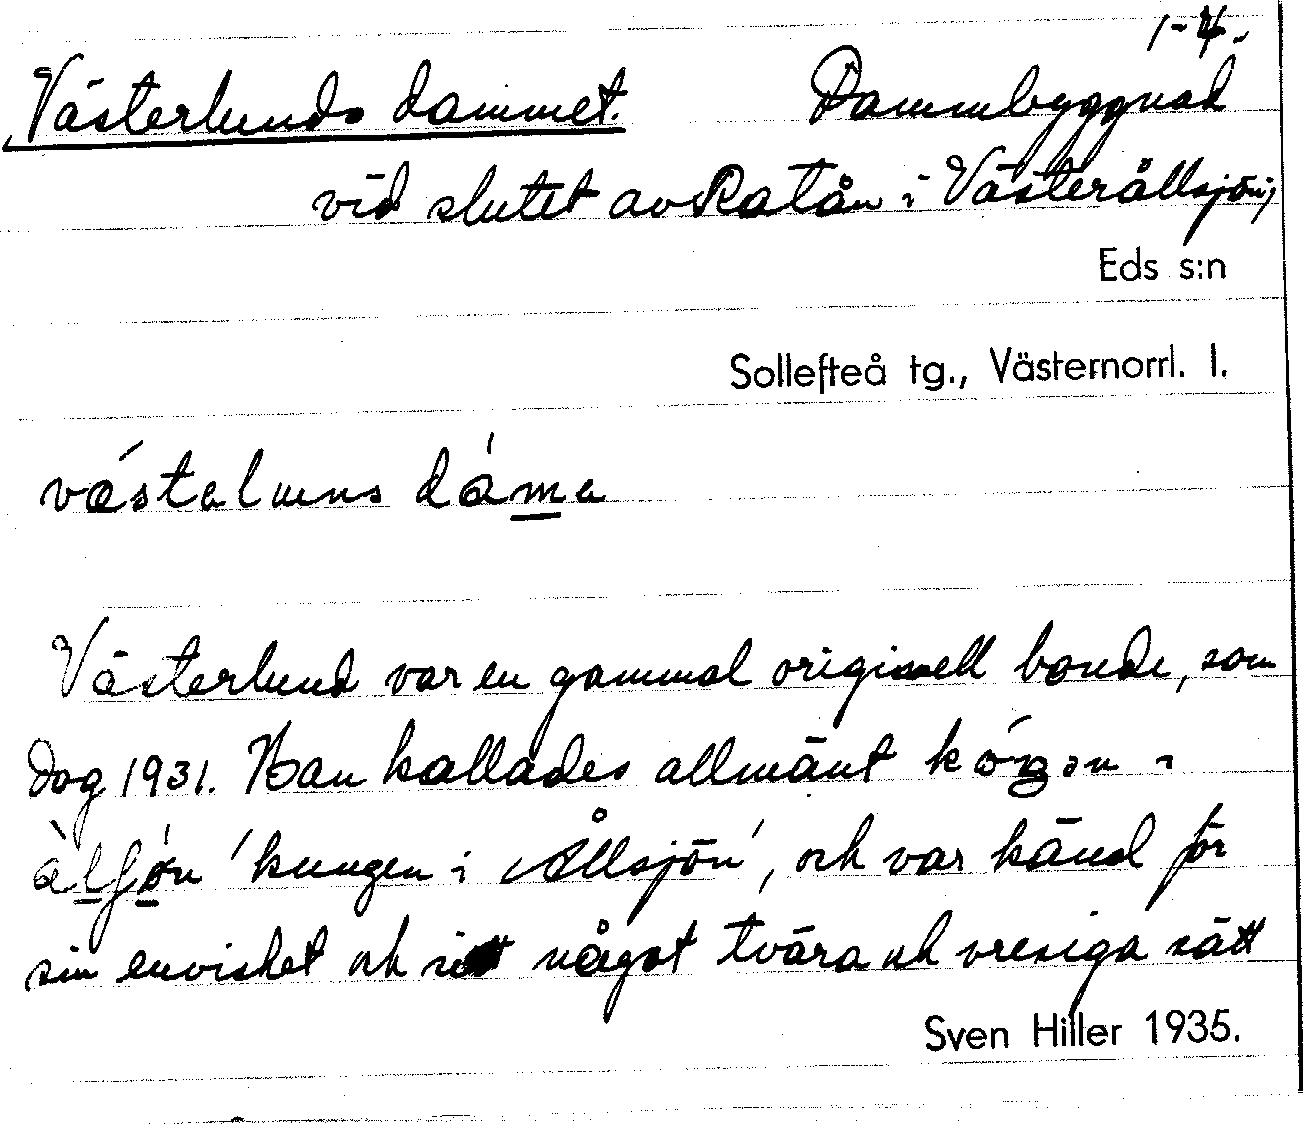 1-4.
Västerlundsdammet. Dammbyggnad
vid slutet av Ratån i Västerållsjöni,
Eds s:n
Sollefteå tg., Västernorrl. l.
Västerlund var en gammal originell bonde, som
dog 1931. Han kallades allmänt
'kungen i Ållsjön', och var känd för
sin envishet och sitt något tvära och vresiga sätt
Sven Hiller 1935.